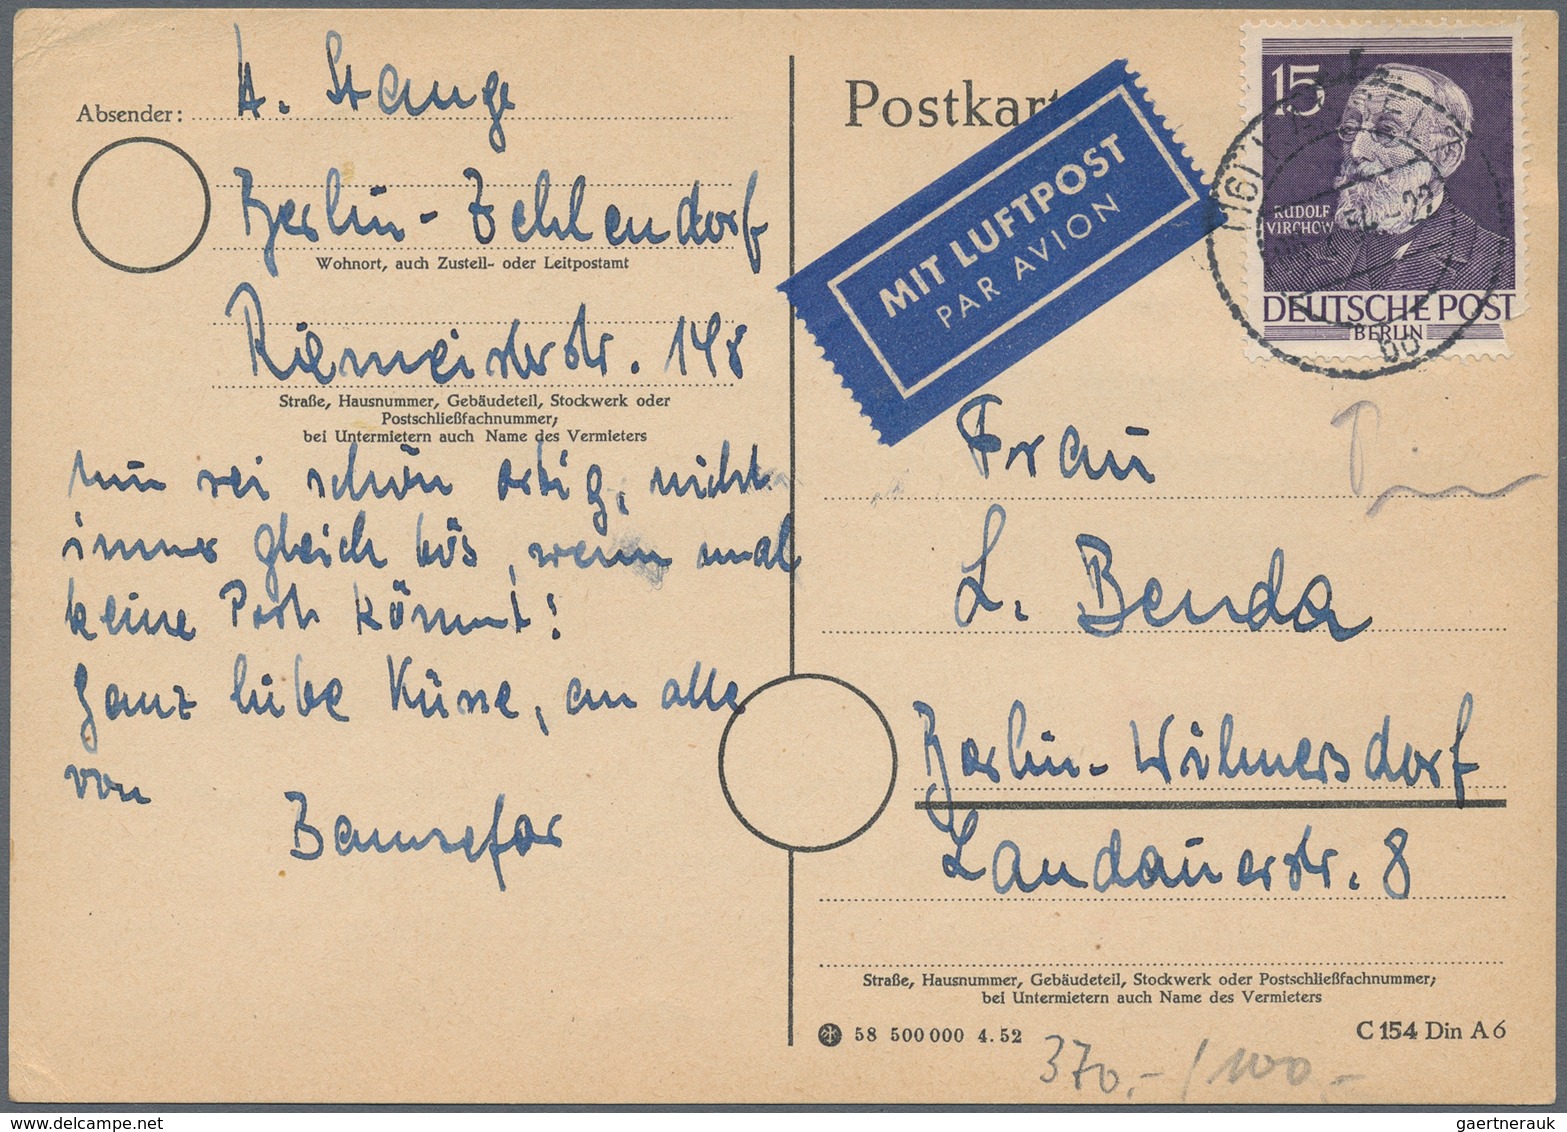 Absender: H. Stange
Berlin-Zehlendorf
Wohnort, auch Zustell- oder Leitpostamt
Riemeisterstr. 148
Straße, Hausnummer, Gebäudeteil, Stockwerk oder
Postschließfachnummer;
bei Untermietern auch Name des Vermieters
nun sei schön artig, nicht
immer gleich bös, wenn mal
keine Post kömmt!
Ganz liebe Küsse, an alle
von
Postkart
MIT LUFTPOST
PAR AVION
15
RUDOLF
VIRCHOW
DEUTSCHE POST
BERLIN
(16)
Frau
L. Benda
Berlin-Wilmersdorf
Landauerstr. 8
Straße, Hausnummer, Gebäudeteil, Stockwerk oder Postschließfachnummer;
bei Untermietern auch Name des Vermieters
58 500 000 4.52
C 154 Din A 6
370,- / 100,-
gaertnerauk @ delcampe.net